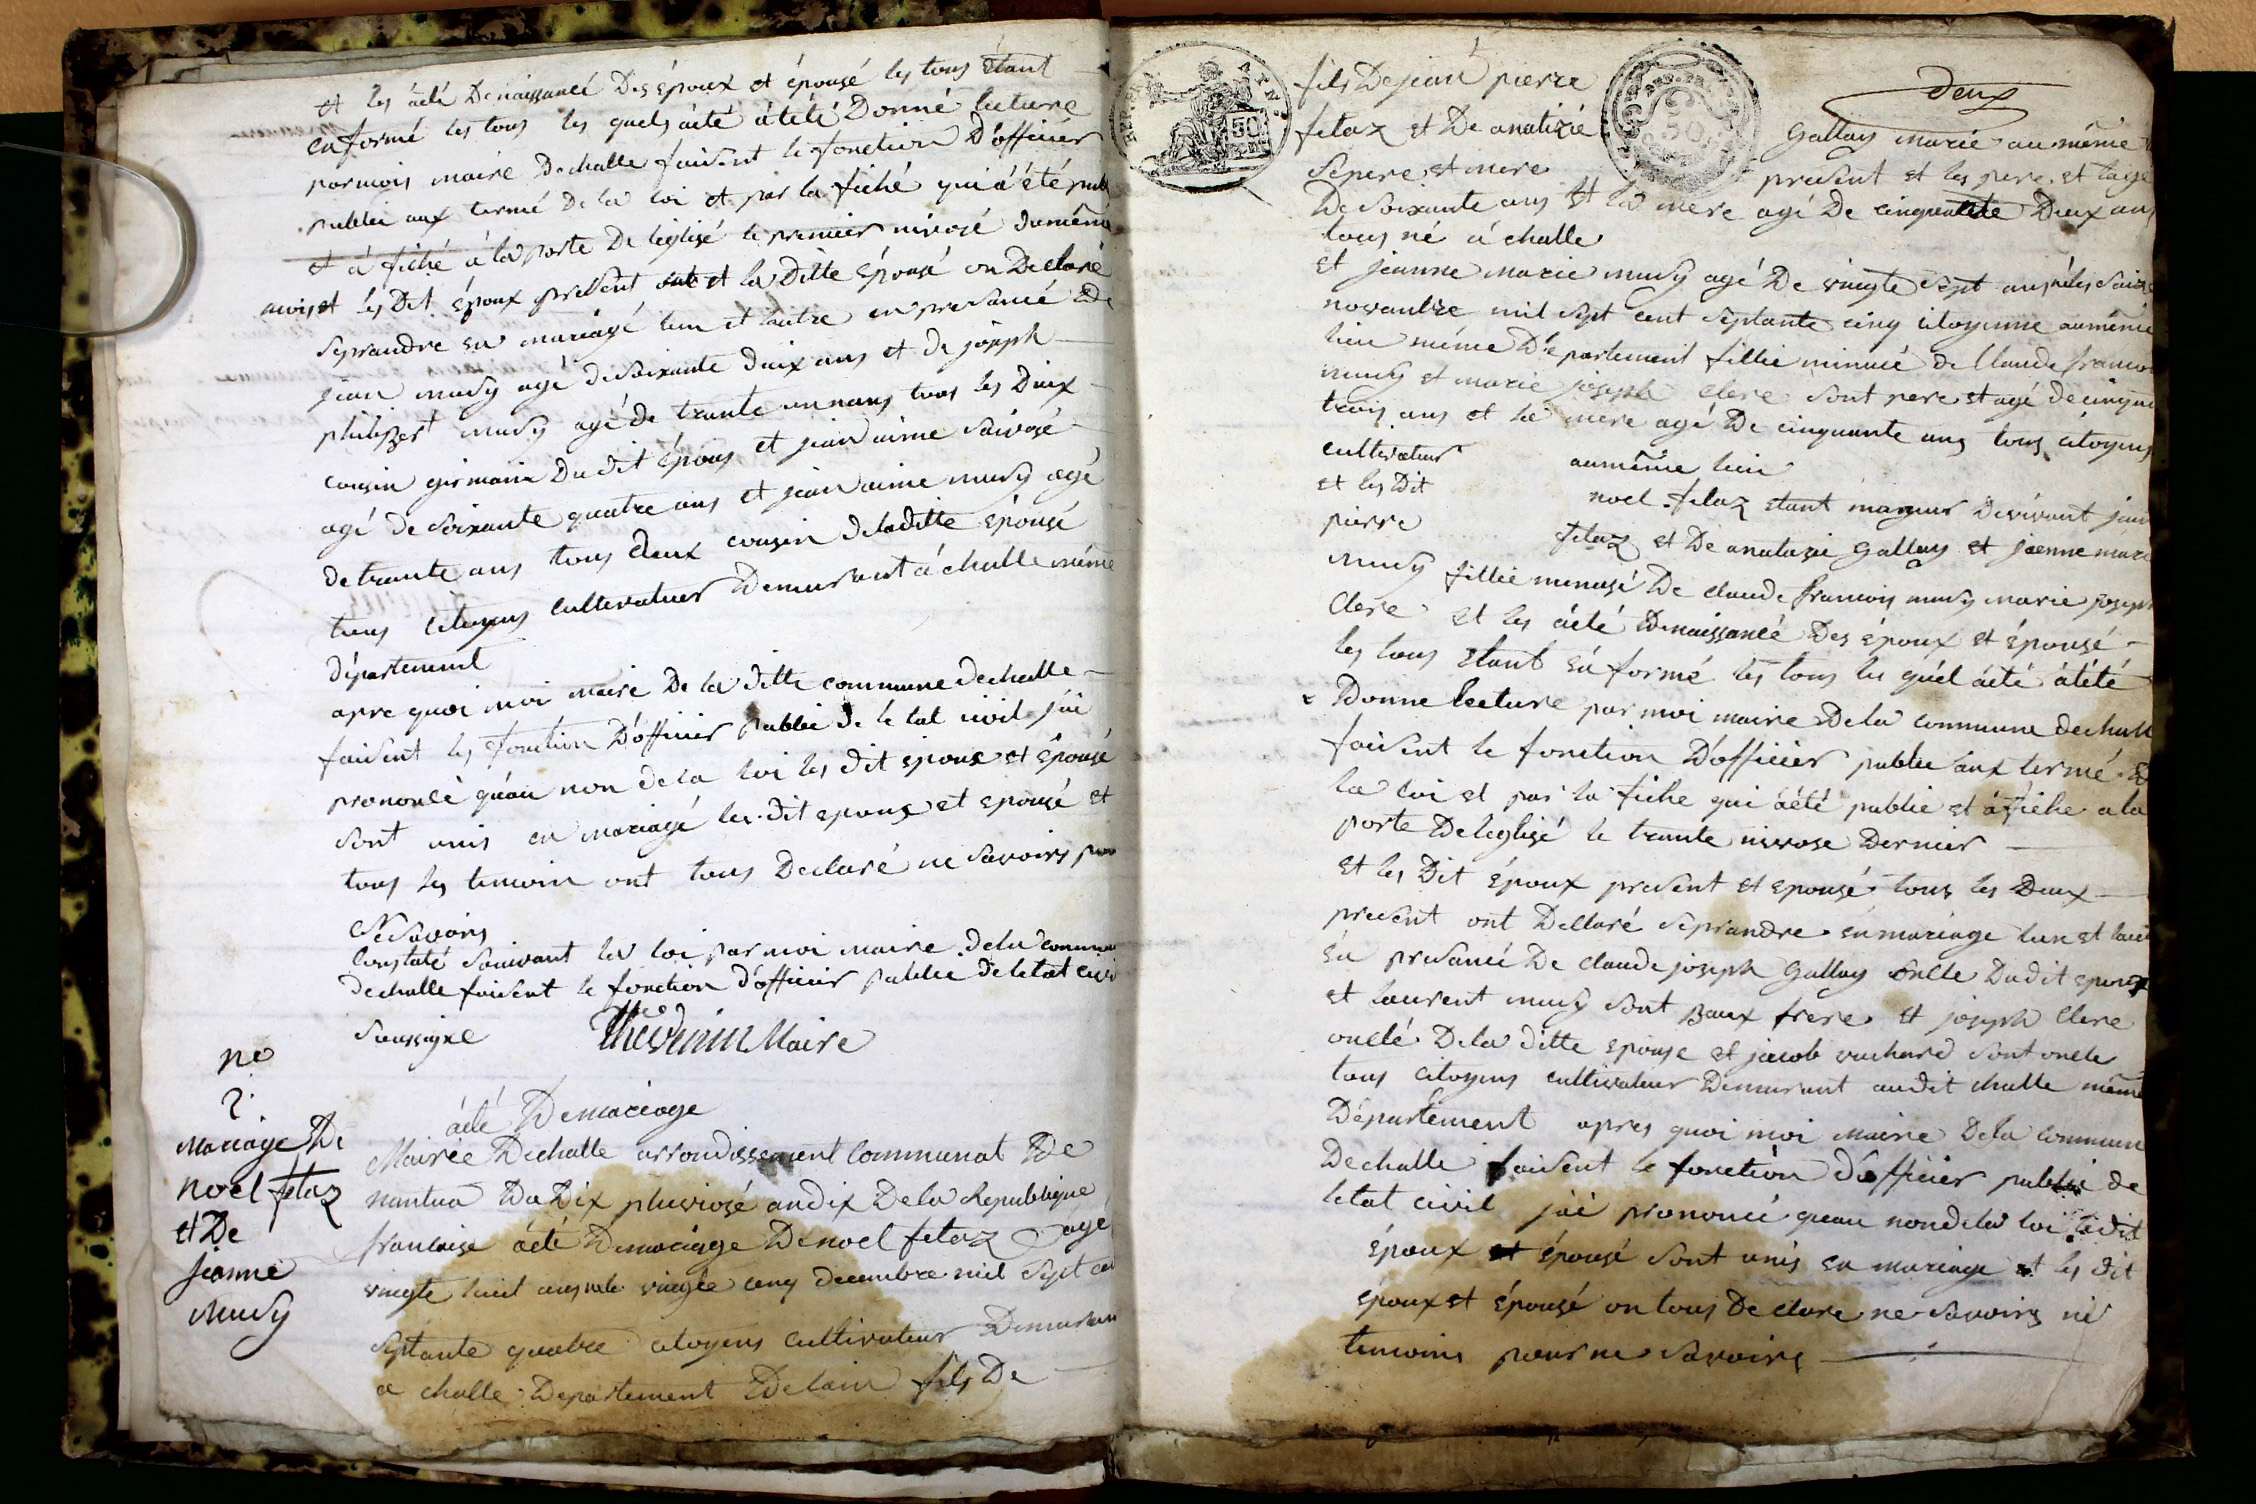 et les àcté Denaissancé Des époux et épousé les tous étant
enformé les tous les quels àcté àtété Donné lecture
parmois maire Dechalle faisent le fonction D'officier
publié aux termé De la loi et par la fiché qui à été publ
et à fiché à la porte De léglisé le premier nivosé dumême
mois et lesDit époux present et la Ditte épousé on Declaré
seprandre en mariagé lun et lautre en presancé De
jean musy agé desoixante Duix ans et de joseph
philibert musy agé de trante un nans tous les Duix
cousin germain Dudit épous et jean aimé
agé de soixante quatre ans et jean aime musy agé
de trante ans tous deux cousin deladitte épousé
tous citoyens cultivateur Demurant á challe même
département
apre quoi moi maire De la ditte commune dechalle
faisent les fonction D'officier publié de le tat civil jái
prononcé quáu non de la loi les dit époux et épousé
sont unis en mariagé les dit epoux et epousé et
tous les temoin ont tous Declaré ne savoirs pour
nesavoirs
Constaté souivant la loi par moi maire delu commune
dechalle faisent le fonction d'officier publié deletat civil
soussigne Thévenin Maire
no
2.
mariage De
noel fetaz
et De
jeanne
Musy
àcté Demariage
Mairée Dechalle arrondissement Communat De
nantua Du Dix pluviosé andix Dela Republique
francaise àcté Demariage Denoel fetaz agé
vingte huit ans née vingte cinq decembre mil sept cen
septante quatre citoyens cultivateur Demurant
a challe Departement Delain fils De
deux
fils Dejean pierre
fetaz et De anatizié Gallay marié au même
Sepere et mere present et les pere et lagé
De soixante ans et la mere agé De cinquante Deux ans
tous né á challe
et jeanne marie musy agé De vingte sept ans née seize
novambre mil sept cent septante cinq citoyenne aumême
lieu même Département fillié minué de Claude francois
musy et marie joseph Clere sont pere et agé decinqua
trois ans et la mere agé De cinquante ans tous citoyens
cultivateur aumême lieu
et les Dit noel fetaz etant mageur devivant jean
pierre fetaz et De anatazie Gallay et jeanne marie
musy fillié menusé De claude francois musy marie joseph
Clere et les àcté Denaissancé Des époux et épousé
les tous etant enformé les tous les quel àcté àtété
Donne lecture par moi maire Dela commune dechalle
faisent le fonction D'officier publié aux termé De
la loi et par la fiche qui àété publié et àfiché a la
porte Deleglisé le trante nivose Dernier
et les Dit époux present et epousé tous les Deux
present ont Dellaré seprandre enmariage lun et lautre
en presancé De claude joseph Gallay onclle Dudit epoux
et laurent musy sont Baux frere et joseph Clere
onclé Dela ditte epouse et jacob vuchard sont onclle
tous citoyens cultivateur Demurant audit challe même
Département apres quoi moi maire Dela commune
Dechalle faisent le fonction d'officier publié de
letat civil jái prononcé queau nondela loi ledit
époux et épousé sont unis en mariage et les dit
époux et épousé on tous Declare ne savoirs ni
temoins pour ne savoirs